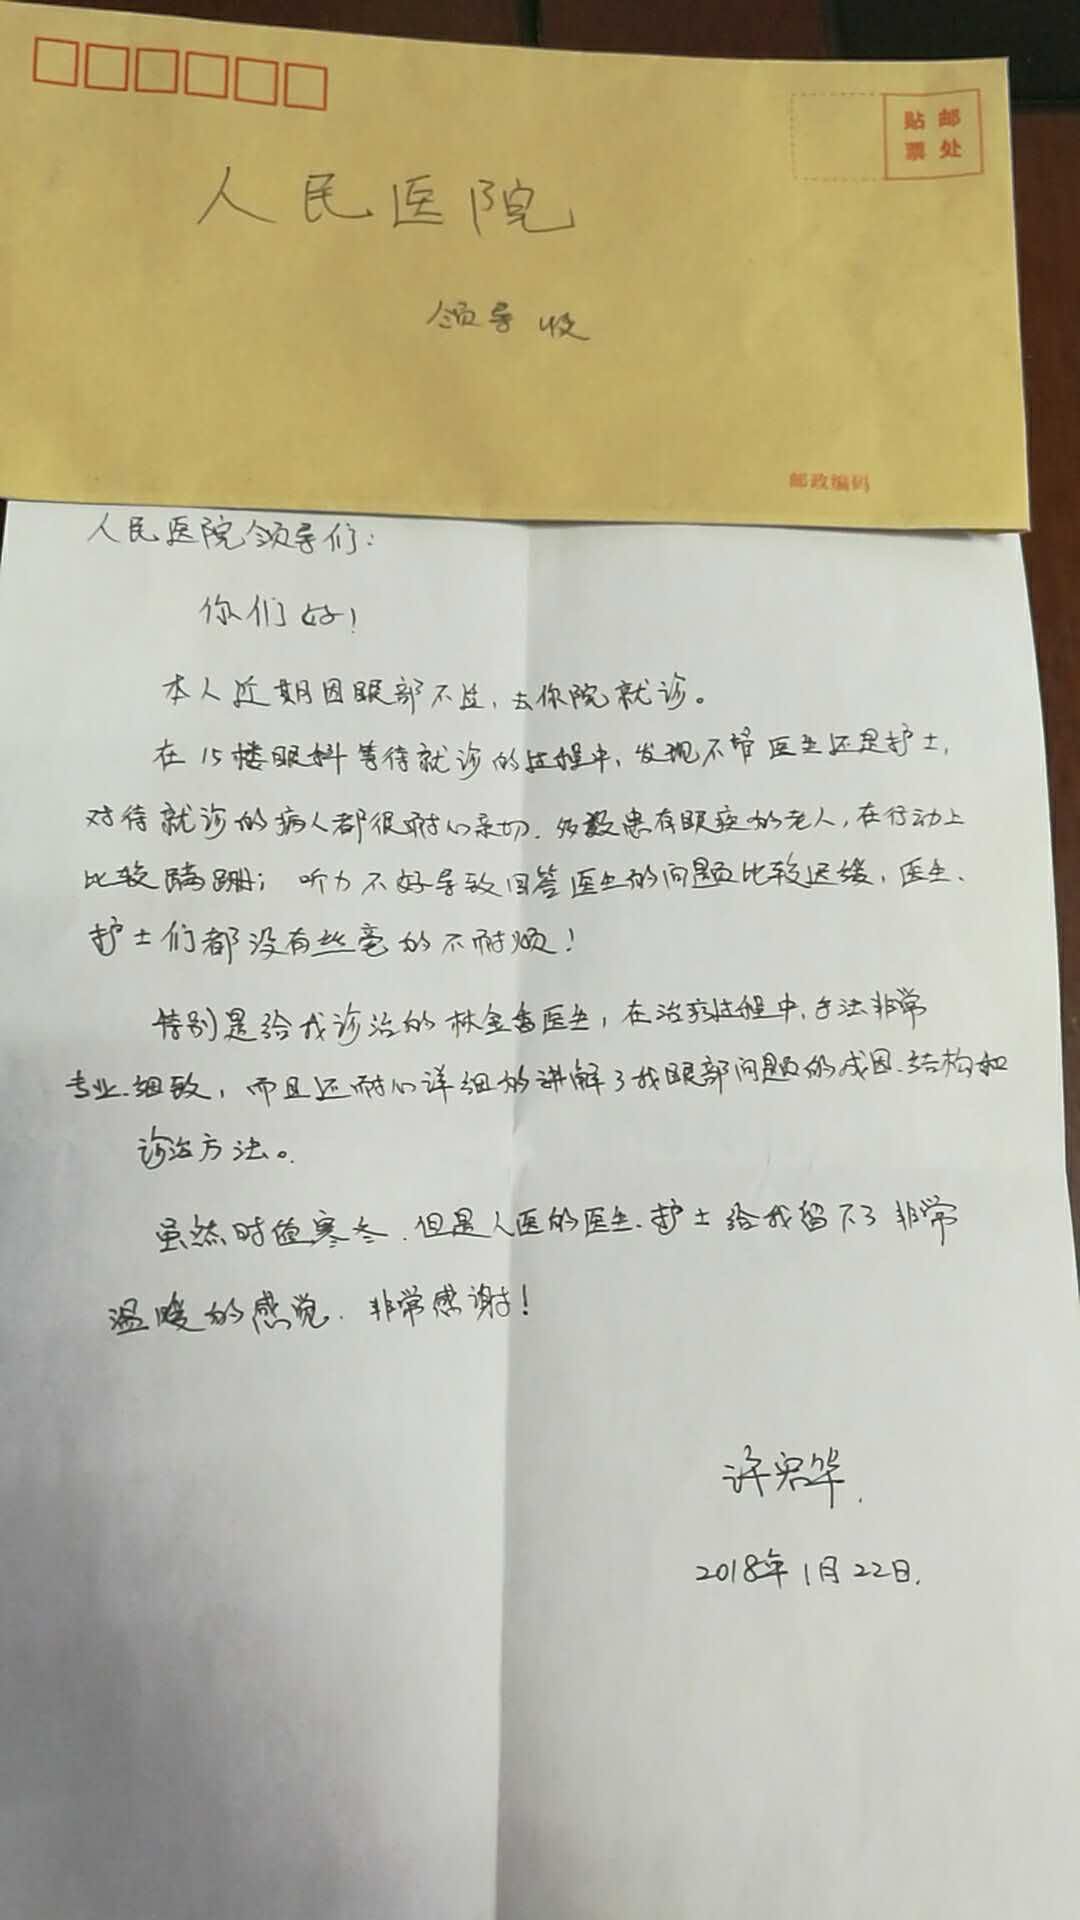 贴邮
票处
人民医院
领导收
邮政编码
人民医院领导们：
你们好！
本人近期因眼部不适，去你院就诊。
在15楼眼科等待就诊的过程中，发现不管医生还是护士，
对待就诊的病人都很耐心亲切．多数患有眼疾的老人，在行动上
比较蹒跚；听力不好导致回答医生的问题比较迟缓，医生、
护士们都没有丝毫的不耐烦！
特别是给我诊治的林金香医生，在治疗过程中，手法非常
专业、细致，而且还耐心详细的讲解了我眼部问题的成因、结构和
诊治方法。
虽然时值寒冬，但是人医的医生、护士给我留下了非常
温暖的感觉．非常感谢！
许君华．
2018年1月22日．